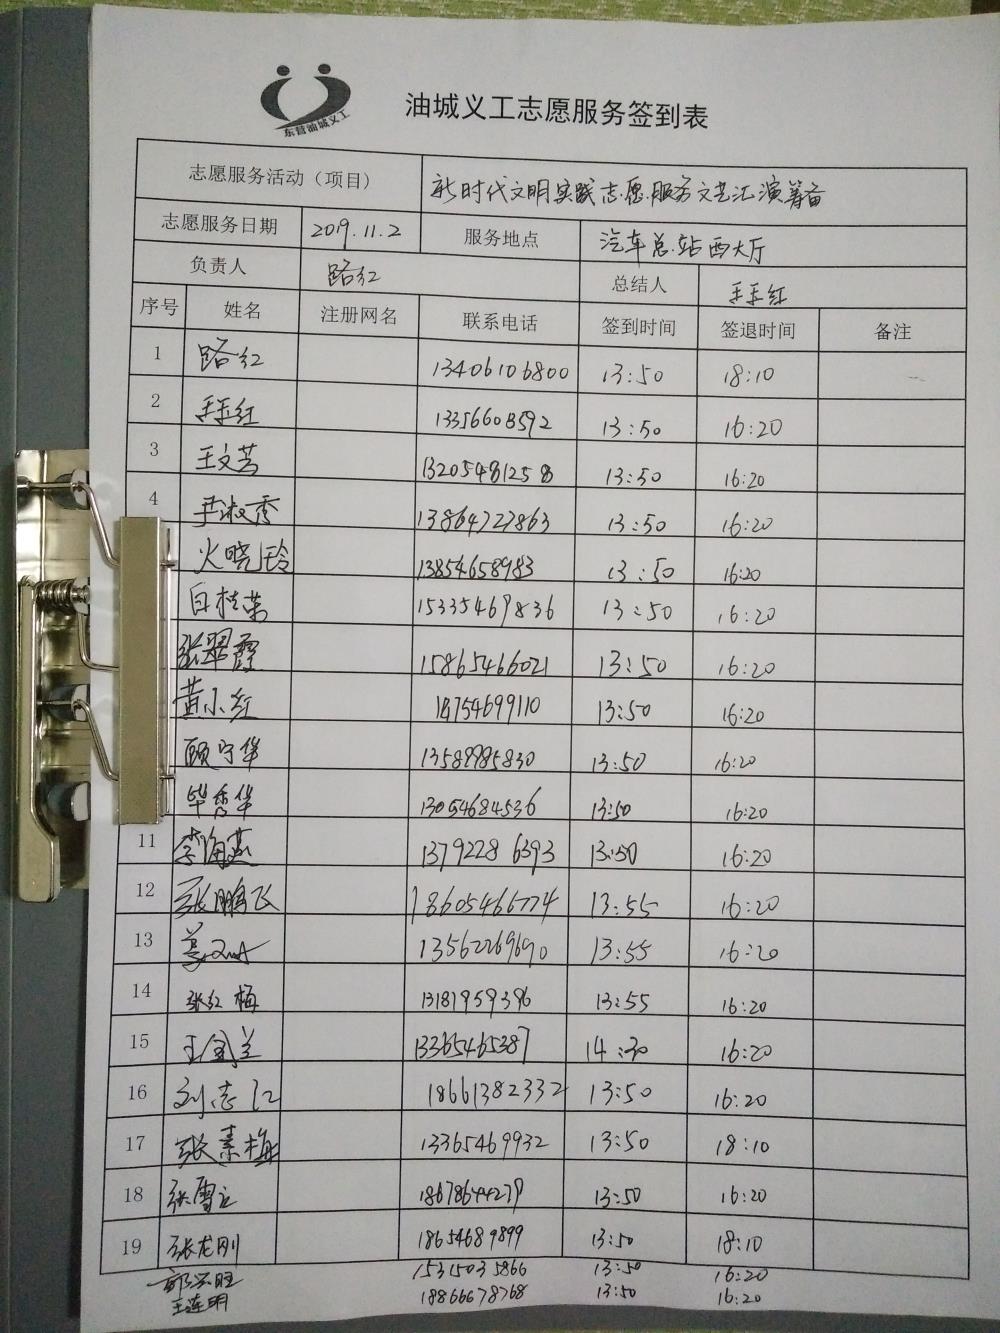 东营油城义工
油城义工志愿服务签到表
志愿服务活动（项目） 新时代文明实践志愿服务文艺汇演筹备
志愿服务日期 2019.11.2 服务地点 汽车总站西大厅
负责人 路红 总结人 王玉红
序号 姓名 注册网名 联系电话 签到时间 签退时间 备注
1 路红 13406106800 13:50 18:10
2 王玉红 13356608592 13:50 16:20
3 王文芳 13205481258 13:50 16:20
4 尹淑秀 13864727863 13:50 16:20
火晓玲 13854658983 13:50 16:20
白桂荣 15335469836 13:50 16:20
张翠霞 15865466021 13:50 16:20
黄小红 14754699110 13:50 16:20
顾宁华 13589985830 13:50 16:20
毕秀华 13054684536 13:50 16:20
11 李海燕 13792286393 13:50 16:20
12 张鹏飞 18605466774 13:55 16:20
13 13562269690 13:55 16:20
14 张红梅 13181959396 13:55 16:20
15 王金兰 13365465387 14:30 16:20
16 刘志江 18661382332 13:50 16:20
17 张素梅 13365469932 13:50 18:10
18 张雪立 18678644279 13:50 16:20
19 张龙刚 18654689899 13:50 18:10
15315035866 13:50 16:20
王连明 18866678768 13:50 16:20